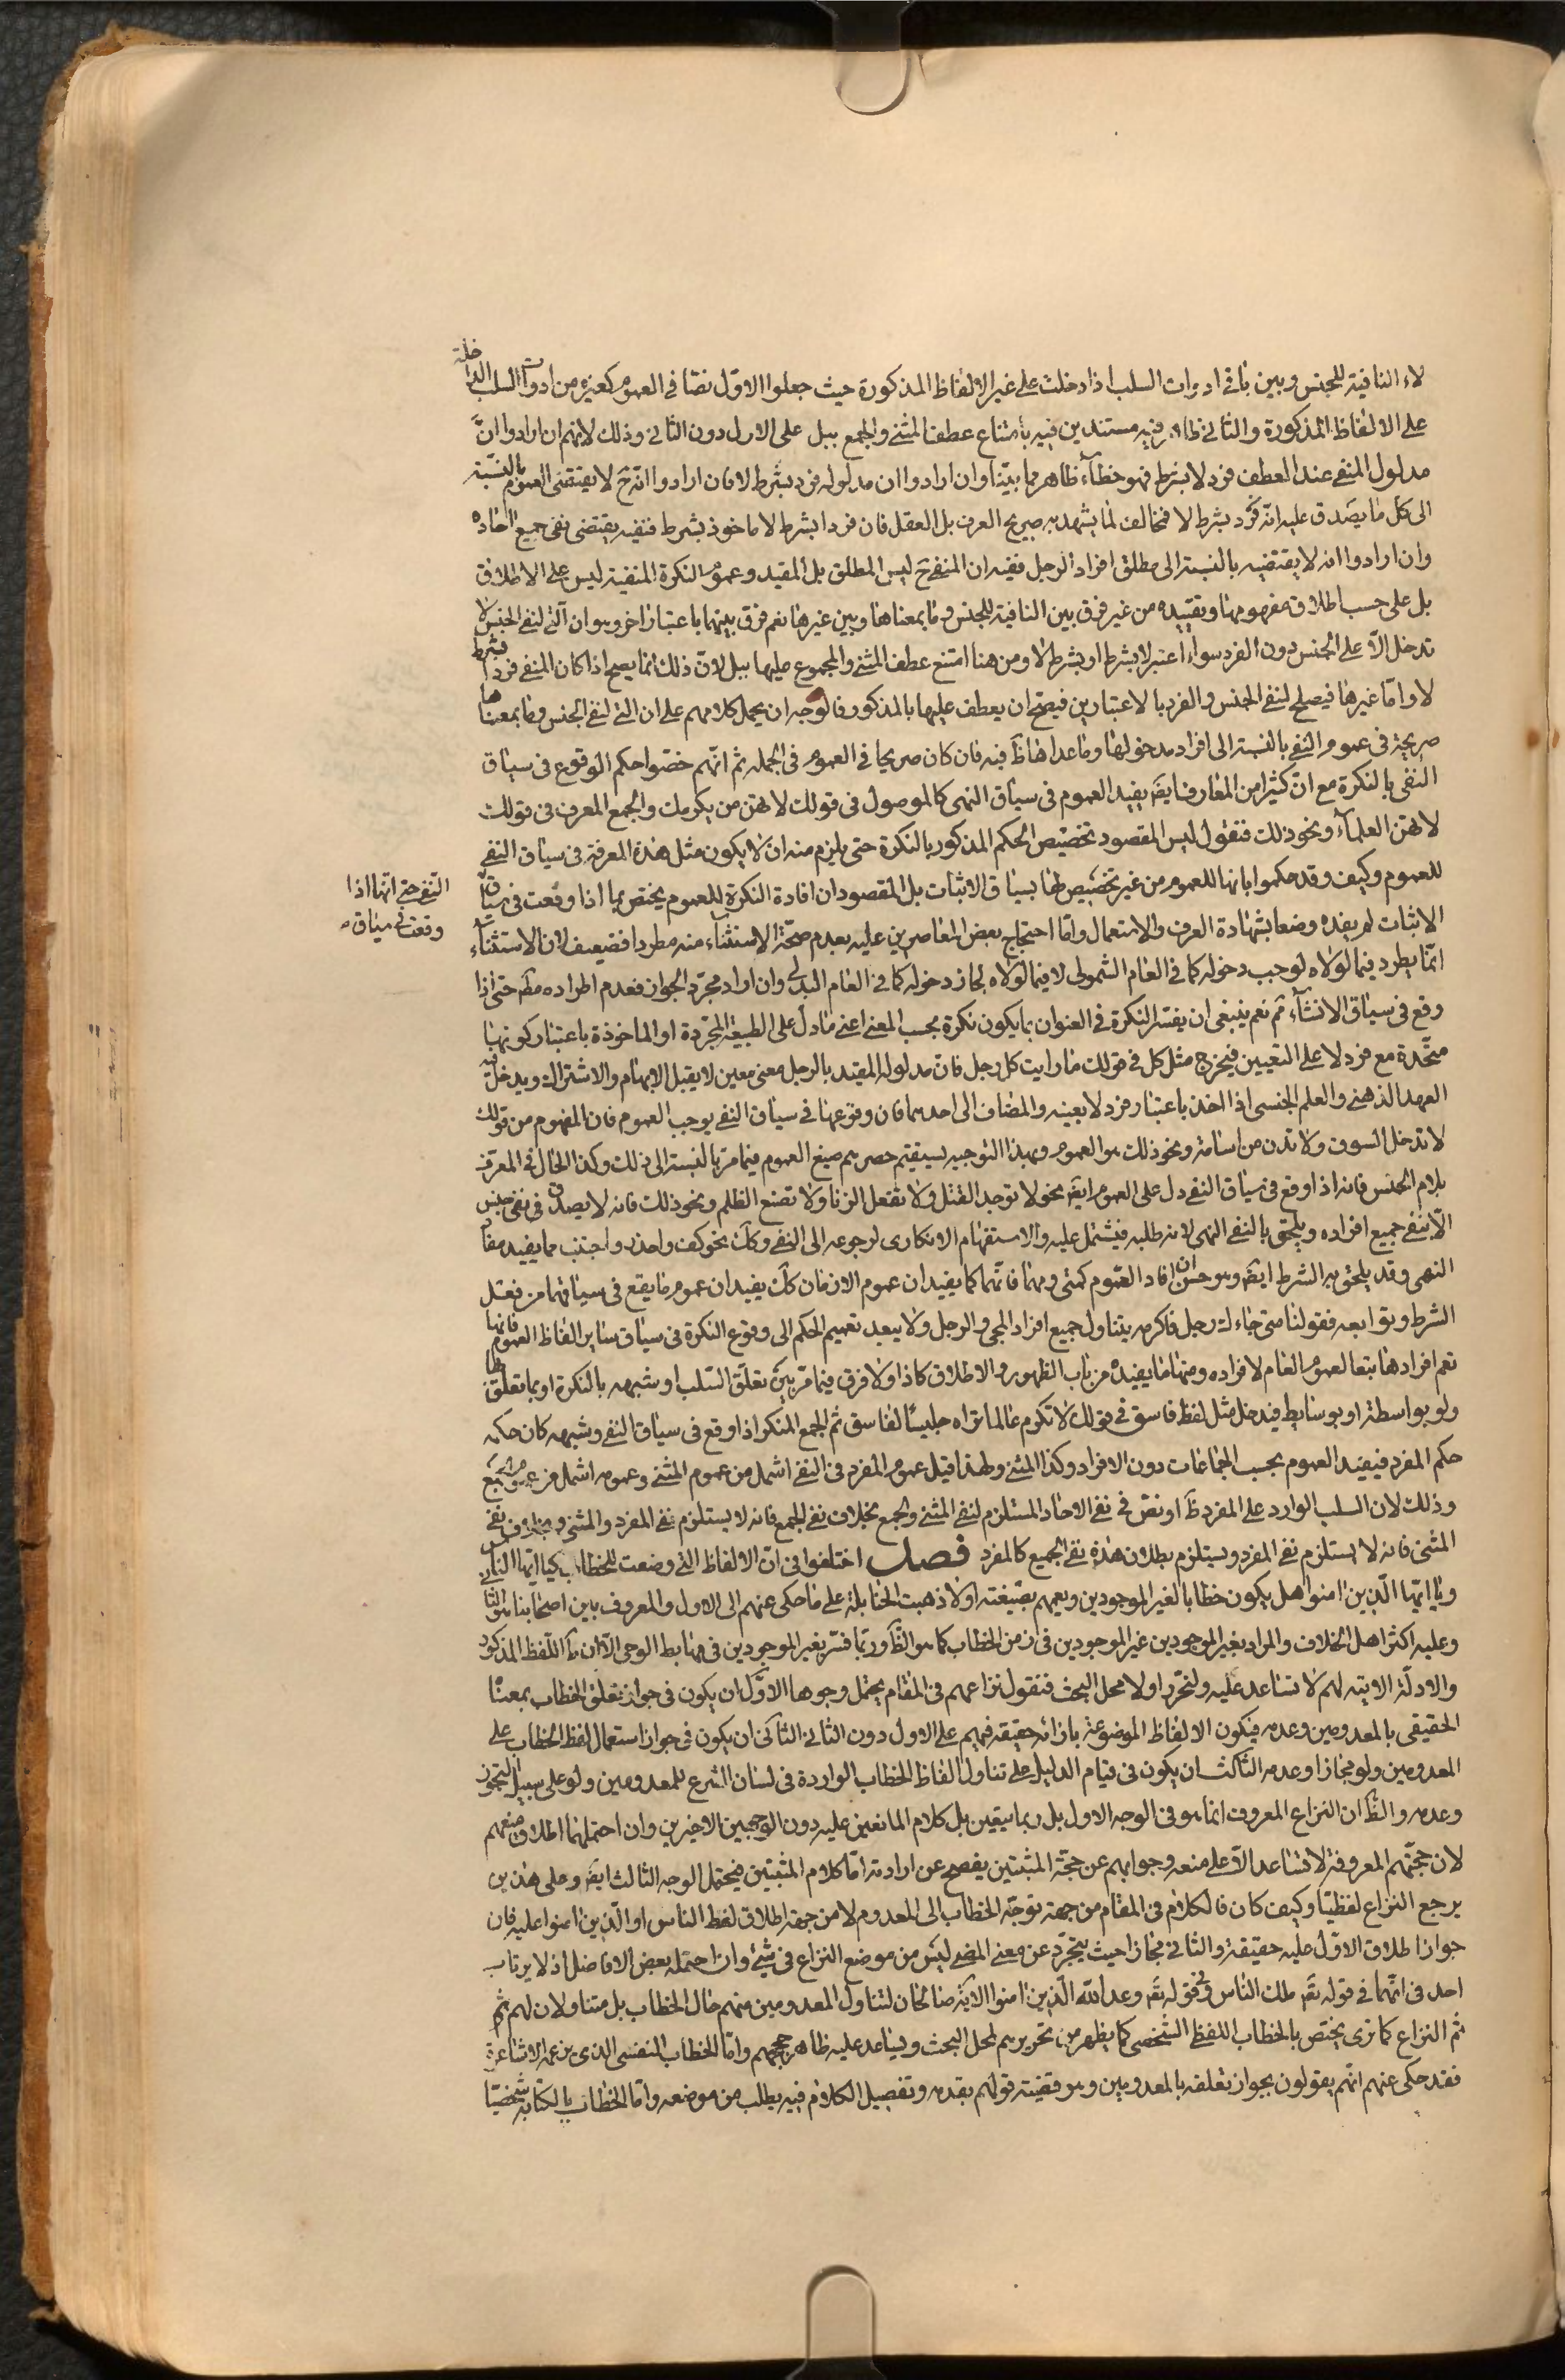 لاء النافية للجنس وبين باقى ادوات السلب اذا دخلت على غير الالفاظ المذكورة حيث جعلوا الاوّل نصّا فى العموم كغيره من ادوات السلب الداخلة
على الالفاظ المذكورة والثانى ظاهرا فيه مستندين فيه بامتناع عطف المثنى والجمع ببل على الاول دون الثانى وذلك لانهم ان ارادوا انّ
مدلول المنفى عند العطف فرد لا بشرط فهو خطاء ظاهر مما بيّنا وان ارادوا ان مدلوله فرد بشرط لا فان ارادوا انّه ح لا يقتضى العموم بالنسبة
الى كل ما يصدق عليه انّه فرد بشرط لا فمخالف لما يشهد به صريح العرف بل العقل فان فردا بشرط لا ماخوذ بشرط فنفيه يقتضى نفى جميع احاده
وان ارادوا انه لا يقتضيه بالنسبة الى مطلق افراد الرجل ففيه ان المنفى ح ليس المطلق بل المقيد وعموم النكرة المنفية ليس على الاطلاق
بل على حسب اطلاق مفهومها وتقييده من غير فرق بين النافية للجنس وما بمعناها وبين غيرها نعم فرق بينهما باعتبار اخر وهو ان الّتى لنفى الجنس لا
تدخل الّا على الجنس دون الفرد سواء اعتبر لا بشرط او بشرط لا ومن هنا امتنع عطف المثنى والمجموع عليها ببل لانّ ذلك انما يصح اذا كان المنفى فردا بشرط
لا وامّا غيرها فيصلح لنفى الجنس والفرد بالاعتبارين فيصحّ ان يعطف عليها بالمذكور فالوجه ان يحمل كلامهم على ان التى لنفى الجنس وما بمعناها
صريحة فى عموم النفى بالنسبة الى افراد مدخولها وما عداها ظ فيه فان كان صريحا فى العموم فى الجملة ثم انّهم خصّوا حكم الوقوع فى سياق
النفى بالنكرة مع انّ كثيرا من المعارف ايضا يفيد العموم فى سياق النهى كالموصول فى قولك لا تهن من يكرمك والجمع المعرف فى قولك
لا تهن العلماء ونحو ذلك فنقول ليس المقصود تخصيص الحكم المذكور بالنكرة حتى يلزم منه ان لا يكون مثل هذه المعرفة فى سياق النفى
للعموم وكيف وقد حكموا بانها للعموم من غير تخصيص لها بسياق الاثبات بل المقصود ان افادة النكرة للعموم يختص بما اذا وقعت فى سياق
النفى حتى انّها اذا
وقعت فى سياق
الاثبات لم يفده وضعا بشهادة العرف والاستعمال وامّا احتجاج بعض المعاصرين عليه بعدم صحّة الاستثناء منه مطردا فضعيف لان الاستثناء
انّما يطرد فيما لولاه لوجب دخوله كما فى العام الشمولى لا فيما لولاه لجاز دخوله كما فى العام البدلى وان اراد مجرّد الجواز فعدم اطراده مم حتى اذا
وقع فى سياق الانشاء ثم نعم ينبغى ان يفسّر النكرة فى العنوان بما يكون نكرة بحسب المعنى اعنى ما دلّ على الطبيعة المجرّدة او الماخوذة باعتبار كونها
متّحدة مع فرد لا على التعيين فيخرج مثل كل فى قولك ما رايت كل رجل فان مدلوله المقيد بالرجل معنى معين لا يقبل الابهام والاشتراك ويدخل فيه
العهد الذهنى والعلم الجنسى اذا اخذ باعتبار فرد لا بعينه والمضاف الى احدهما فان وقوعها فى سياق النفى يوجب العموم فان المفهوم من قولك
لا تدخل السوق ولا تدن من اسامة ونحو ذلك هو العموم وبهذا التوجيه يستقيم حصرهم صيغ العموم فيما مر بالنسبة الى ذلك وكذا الحال فى المعرف
بلام الجنس فانه اذا وقع فى سياق النفى دل على العموم ايضا نحو لا توجد القتل ولا تفعل الزنا ولا تصنع الظلم ونحو ذلك فانه لا يصدق فى نفى جنس
الّا بنفى جميع افراده ويلحق بالنفى النهى لانه طلبه فيشتمل عليه والاستفهام الانكارى لرجوعه الى النفى وكك نحو كف واحذر واجتنب مما يفيد مفاد
النهى وقد يلحق به الشرط ايضا وهو حسن ان افاد العموم كمتى ومهما فانّهما كما يفيدان عموم الازمان كك يفيدان عموم ما يقع فى سياقهما من فعل
الشرط وتوابعه فقولنا متى جاءك رجل فاكرمه يتناول جميع افراد المجى والرجل ولا يبعد تعميم الحكم الى وقوع النكرة فى سياق ساير الفاظ العموم فانها
تعم افرادها تبعا لعموم العام لافراده ومنها ما يفيده من باب الظهور والاطلاق كاذا ولا فرق فيما مرّ بين تعلّق السّلب او شبهه بالنكرة او بما تعلّق بها
ولو بواسطة او بوسايط فيدخل مثل لفظ فاسق فى قولك لا تكرم عالما تراه جليسا لفاسق ثم الجمع المنكر اذا وقع فى سياق النفى وشبهه كان حكمه
حكم المفرد فيفيد العموم بحسب الجماعات دون الافراد وكذا المثنى ولهذا قيل عموم المفرد فى النفى اشمل من عموم المثنى وعمومه اشمل من عموم الجمع
وذلك لان السلب الوارد على المفرد ظ او نصّ فى نفى الاحاد المستلزم لنفى المثنى والجمع بخلاف نفى الجمع فانه لا يستلزم نفى المفرد والمثنى وبخلاف نفى
المثنى فانه لا يستلزم نفى المفرد ويستلزم بطلان هذه نفى الجميع كالمفرد فصل اختلفوا فى انّ الالفاظ التى وضعت للخطاب كيا ايّها الناس
ويا ايّها الّذين امنوا هل يكون خطابا لغير الموجودين ويعمهم بصيغته اولا ذهبت الحنابلة على ما حكى عنهم الى الاول والمعروف بين اصحابنا هو الثانى
وعليه اكثر اهل الخلاف والمراد بغير الموجودين غير الموجودين فى زمن الخطاب كما هو الظ وربّما فسّر بغير الموجودين فى مهابط الوحى الّا ان ظ اللفظ المذكور
والادلّة الاتية لهم لا تساعد عليه ولنحرّر اولا محل البحث فنقول نزاعهم فى المقام يحتمل وجوها الاوّل ان يكون فى جواز تعلّق الخطاب بمعناه
الحقيقى بالمعدومين وعدمه فيكون الالفاظ الموضوعة بازائه حقيقة فيهم على الاول دون الثانى الثانى ان يكون فى جواز استعمال لفظ الخطاب على
المعدومين ولو مجازا وعدمه الثالث ان يكون فى قيام الدليل على تناول الفاظ الخطاب الواردة فى لسان الشرع للمعدومين ولو على سبيل التجوز
وعدمه والظ ان النزاع المعروف انما هو فى الوجه الاول بل ربما يتعين بل كلام المانعين عليه دون الوجهين الاخيرين وان احتملهما اطلاق منعهم
لان حجّتهم المعروفة لا تساعد الّا على منعه وجوابهم عن حجّة المثبتين يفصح عن ارادته امّا كلام المثبتين فيحتمل الوجه الثالث ايضا وعلى هذين
يرجع النزاع لفظيّا وكيف كان فالكلام فى المقام من جهة توجّه الخطاب الى المعدوم لا من جهة اطلاق لفظ الناس او الّذين امنوا عليه فان
جواز اطلاق الاوّل عليه حقيقة والثانى مجازا حيث يتجرّد عن معنى المضى ليس من موضع النزاع فى شئ وان احتمله بعض الافاضل اذ لا يرتاب
احد فى انّهما فى قوله تعم ملك الناس وفى قوله تعم وعد اللّه الّذين امنوا الاية صالحان لتناول المعدومين منهم حال الخطاب بل متناولان لهم ثم
ثم النزاع كما ترى يختص بالخطاب اللفظ الشخصى كما يظهر من تحريرهم لمحل البحث ويساعد عليه ظاهر حججهم وامّا الخطاب النفسى الذى يزعمه الاشاعرة
فقد حكى عنهم انّهم يقولون بجواز تعلقه بالمعدومين وهو قضيّة قولهم بقدمه وتفصيل الكلام فيه يطلب من موضعه وامّا الخطاب بالكتابة شخصيّا